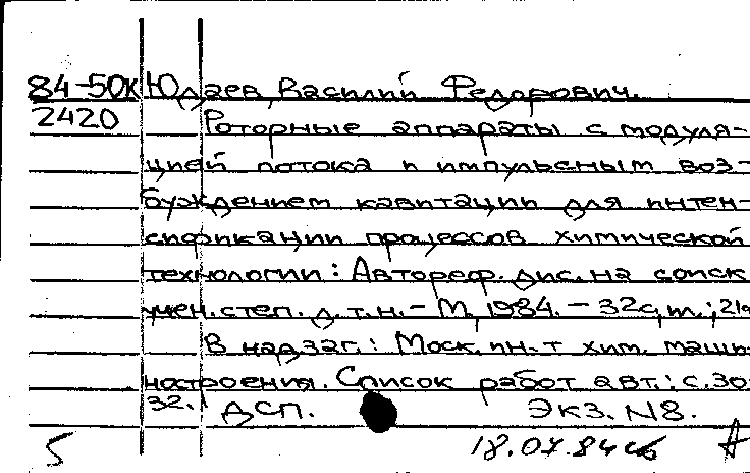 84-50к Юдаев, Василий Федорович.
2420 Роторные аппараты с модуля-
цией потока и импульсным воз-
буждением кавитации для интен-
сификации процессов химической
технологии: Автореф. дис. на соиск
учен. степ. д.т.н. - М., 1984. - 32с,т.; 21с
В надзаг.: Моск. ин-т хим. маши-
ностроения. Список работ авт.: с. 30-
32. ДСП. Экз. N8.
5 18.07.84